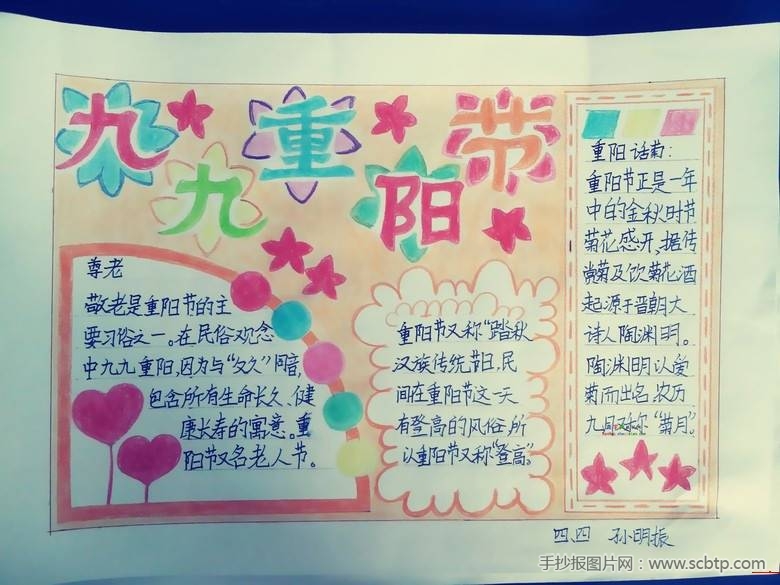 九九重阳节
尊老
敬老是重阳节的主
要习俗之一。在民俗观念
中九九重阳,因为与“久久”同音,
包含所有生命长久、健
康长寿的寓意。重
阳节又名老人节。
重阳节又称“踏秋
汉族传统节日,民
间在重阳节这一天
有登高的风俗,所
以重阳节又称“登高”。
重阳话菊:
重阳节正是一年
中的金秋时节
菊花盛开,据传
赏菊及饮菊花酒
起源于晋朝大
诗人陶渊明。
陶渊明以爱
菊而出名,农历
九月称“菊月”。
四、四 孙明振
手抄报图片网:www.scbtp.com